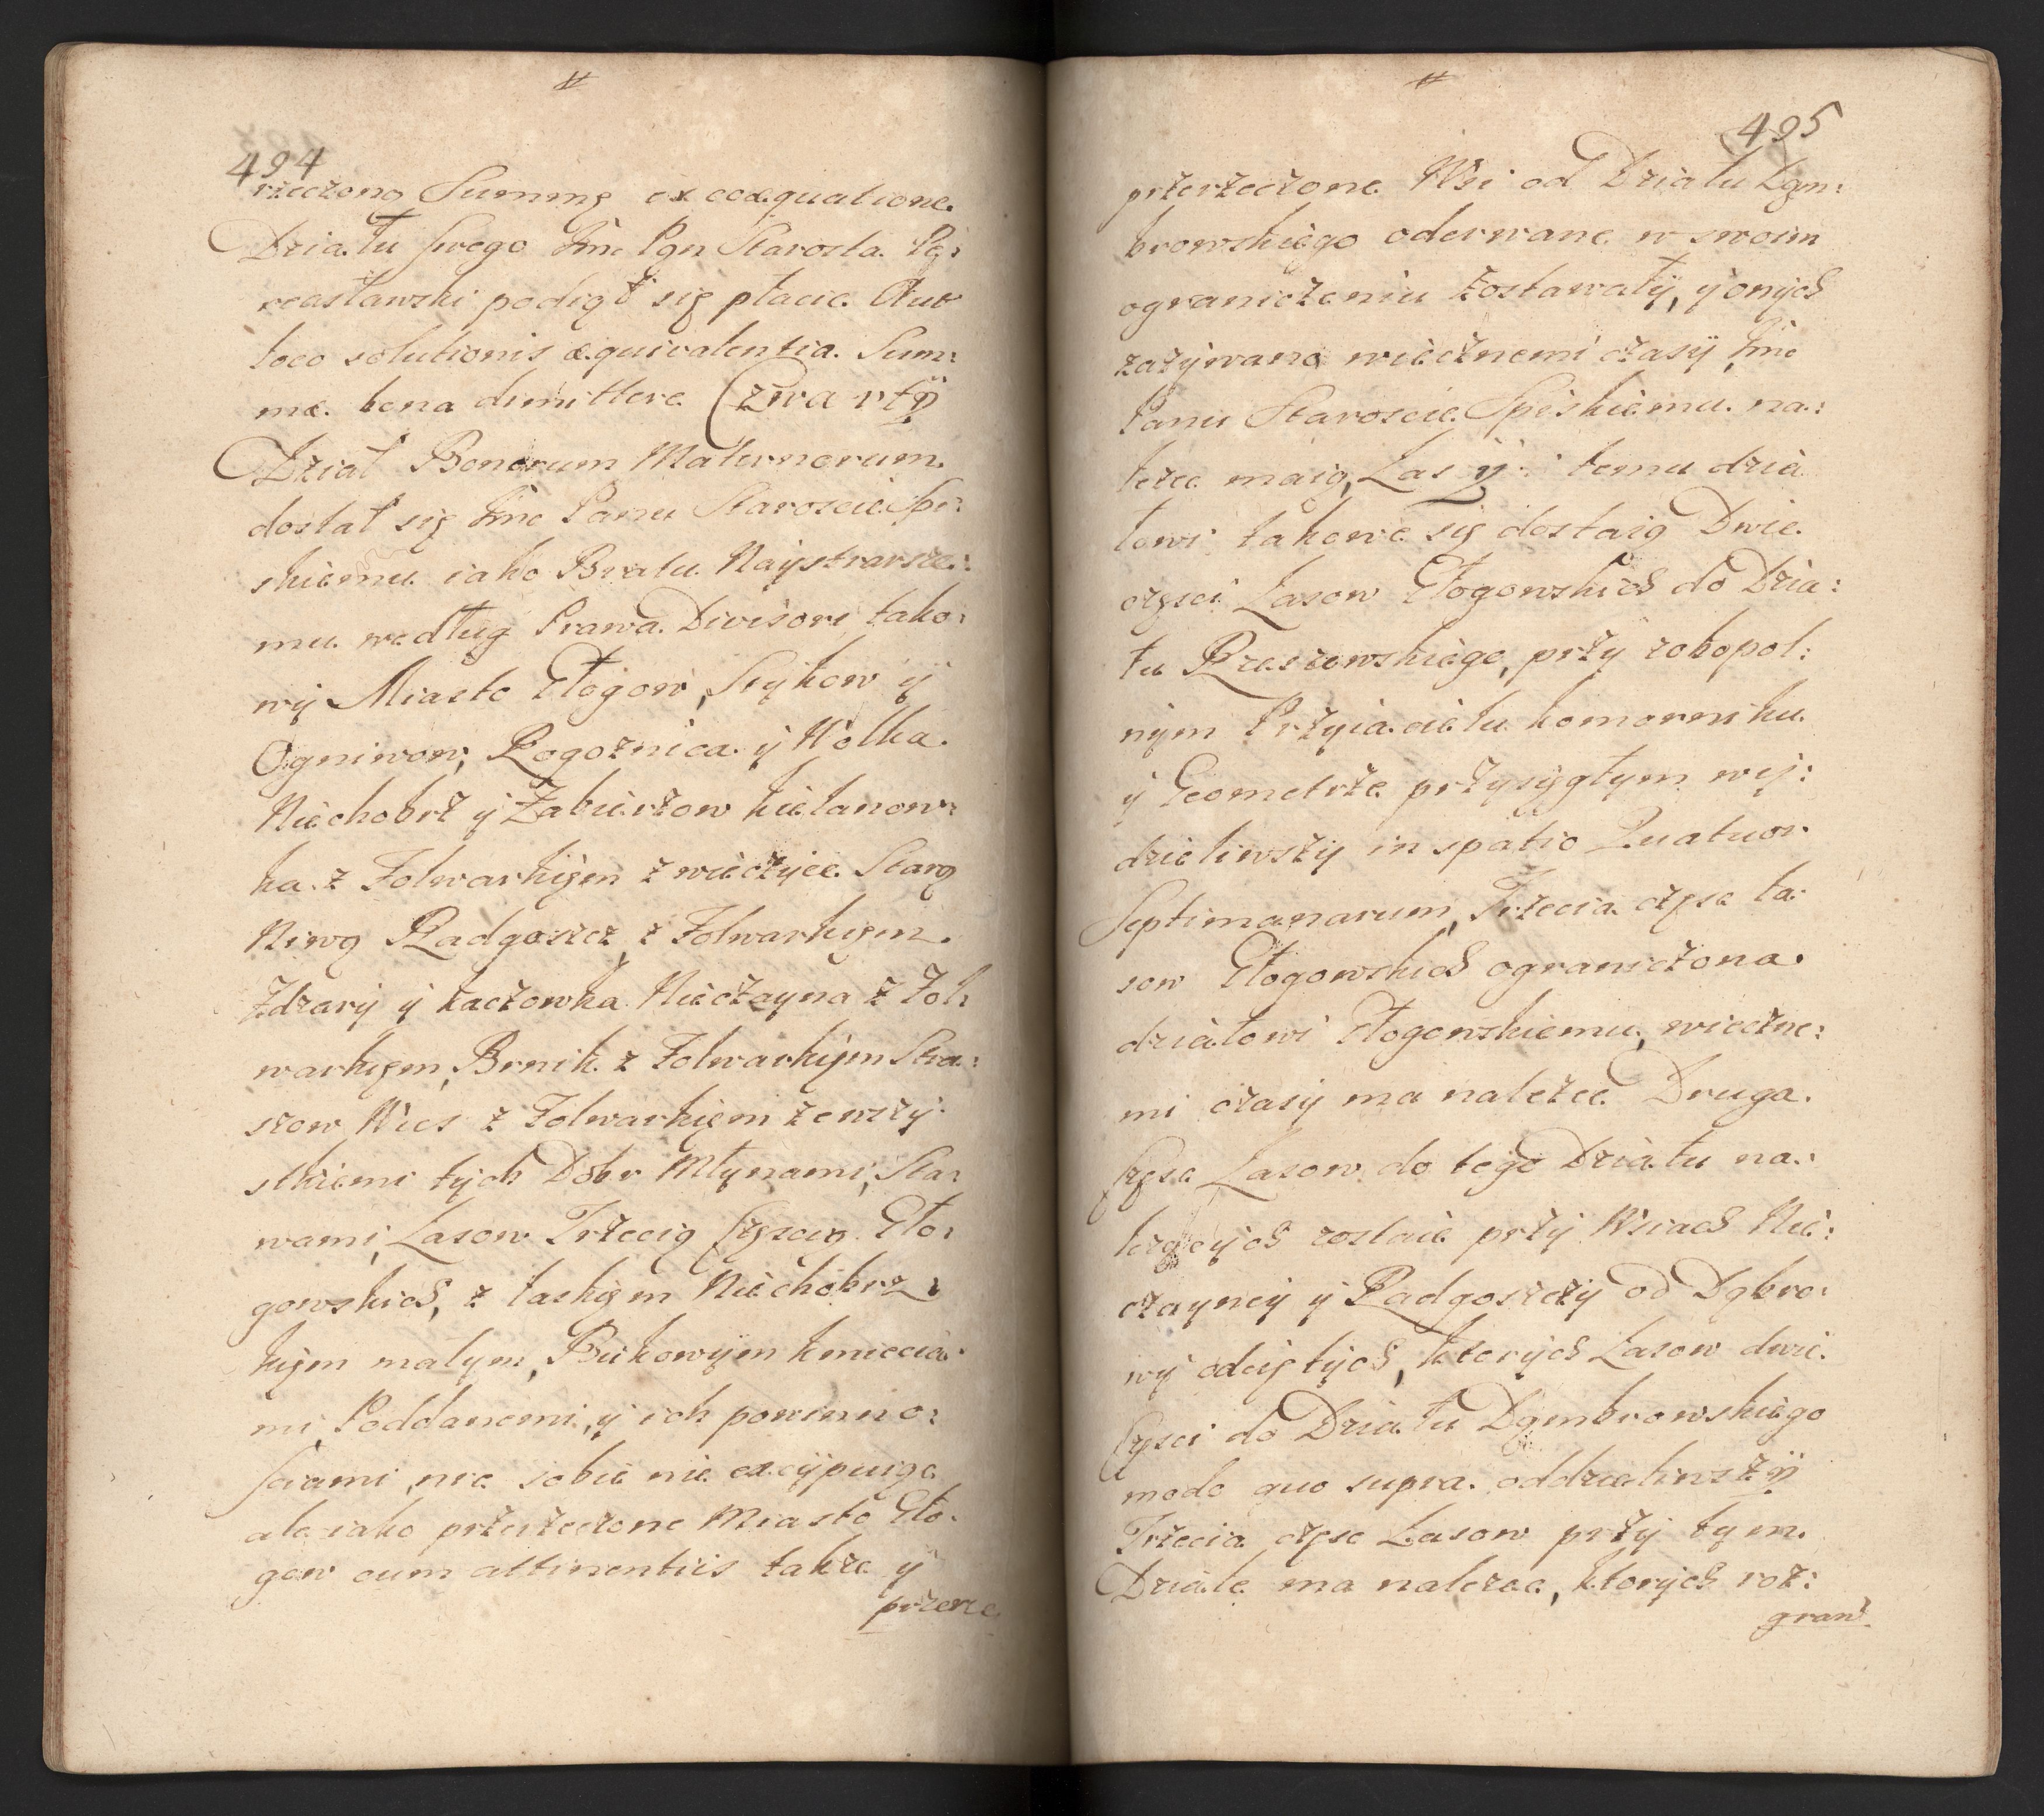 494
rzeczoną Summę ex coæquatione
Działu swego Jmc Pąn Starosta Pę:
reasławski podiął się płacic Aut
loco solutionis æquivalentia Sum:
mæ bona dimittere Czwarty
Dział Bonorum Maternorum
dostał się Jmc Panu Staroscie Spi:
skiemu iako Bratu Naystrarsze:
mu według Prawa Divisori tako:
wy Miasto Głogow, Stykow y
Ogniwow, Rogoznica y Wolka
Niechobrz y Zabierzow kielanow:
ka z Folwarkięm zwięczyce Starą
Niwą Radgoszcz z Folwarkięm
Zdzary y kaczowka Nieczayna z Fol:
warkięm, Brnik z Folwarkięm Stra:
szow Wies z Folwarkięm zewszy:
stkiemi tych Dobr Młynami, Sta:
wami, Lasow Trzecią Częscią Gło:
gowskich, z laskięm Niechobrz:
kięm małym, Bukowym kmiecia:
mi Poddanemi, y ich powinno:
sciami nic sobie nie excypuiąc
ale iako przerzeczone Miasto Gło:
gow cum attinentiis takze y
przerze
495
przerzeczone Wsi od Działu Dąm:
browskiego oderwane w swoim
ograniczeniu zostawały, y onych
zazywano wiecznemi czasy Jmc
Panu Staroscie Spiskiemu na:
lezec maią, Lasy temu dzia
łowi takowe się dostaią Dwie
częsci Lasow Głogowskich do Dzia:
łu Rzeszowskiego, przy zobopol:
nym Przyiacielu komorniku
y Geometrze przysięgłym wy:
dzieliwszy in spatio Quatuor
Septimanarum, Trzecia częsc la:
sow Głogowskich ograniczona
działowi Głogowskiemu, wieczne:
mi czasy ma nalezec Druga
Częsc Lasow do tego Działu na:
lezących zostaie przy Wsiach Nie:
czayney y Radgoszczy od Dąbro:
wy odciętych, ktorych Lasow dwie
Częsci do Działu Dąmbrowskiego
modo quo supra oddzieliwszy
Trzecia częsc Lasow przy tym
Dziale ma nalezec, ktorych roz:
gran